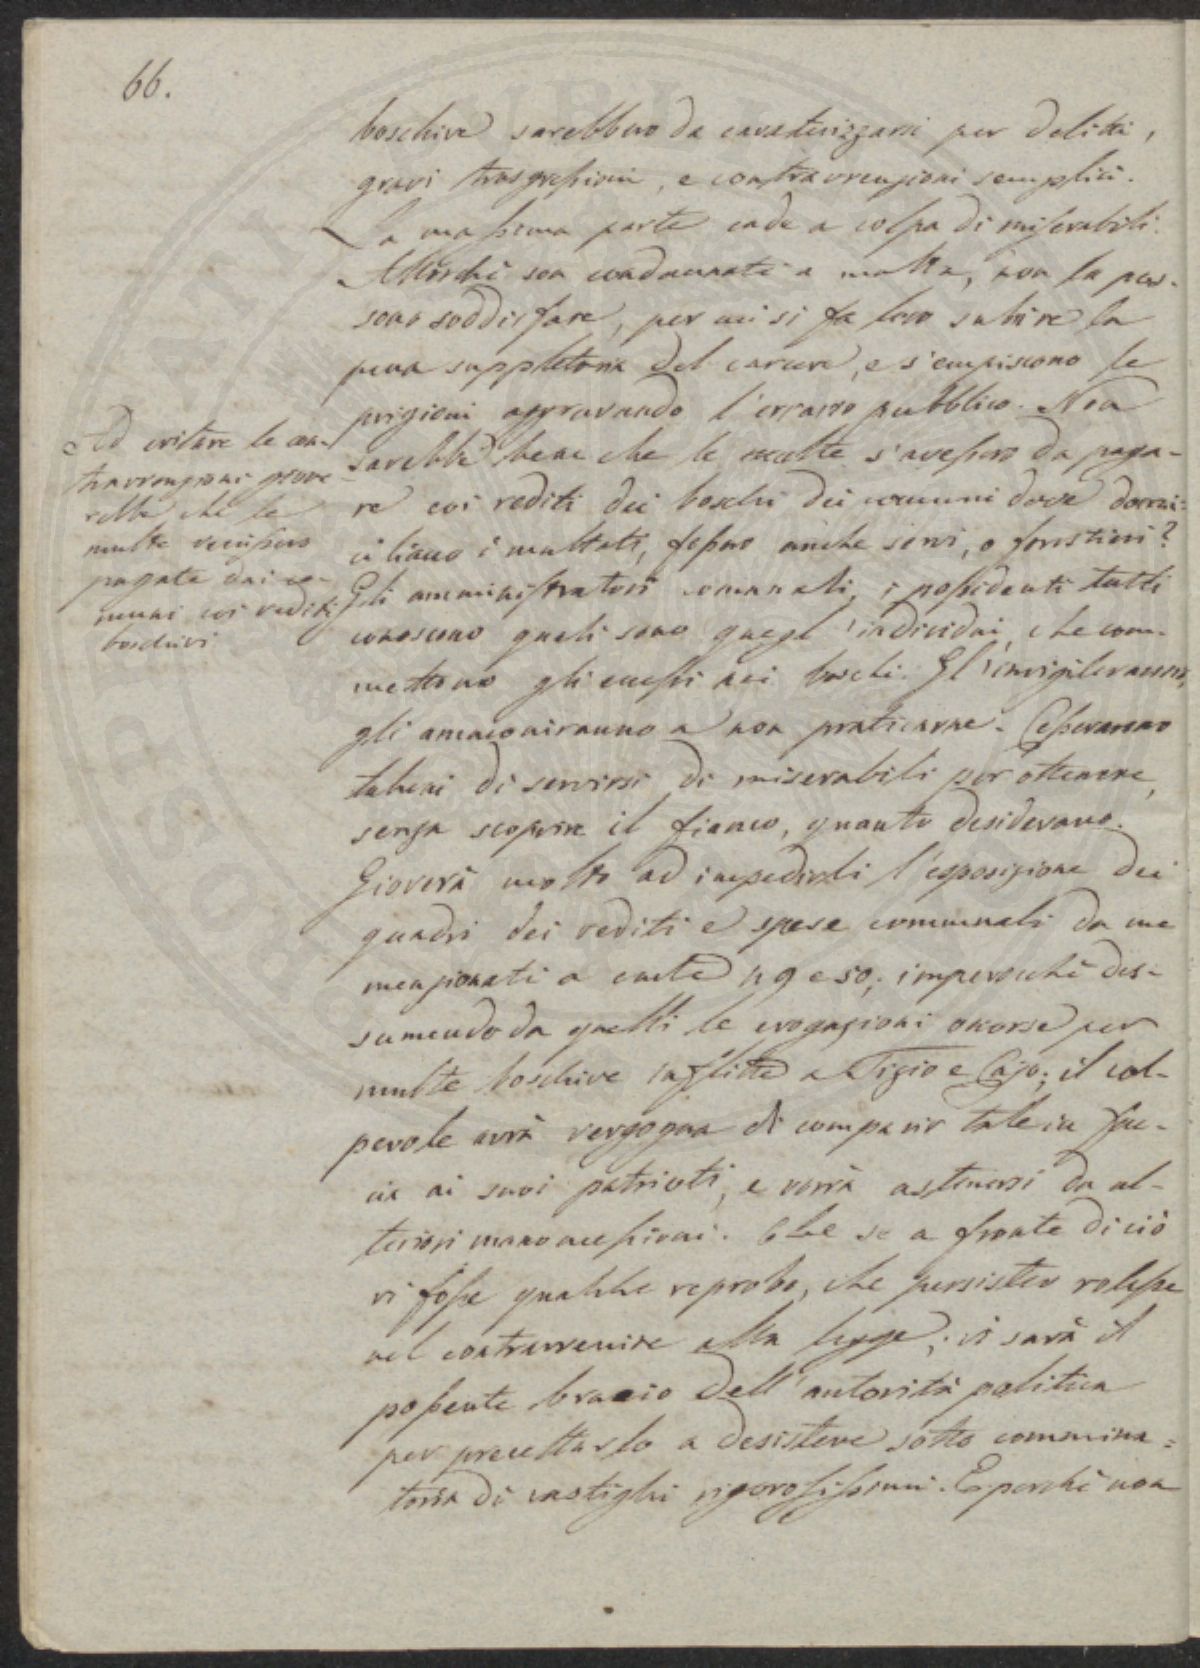 66.
boschive sarebbero da caratterizzarsi per delitti,
gravi trasgressioni, e contravvenzioni semplici.
La massima parte cade a colpa di miserabili.
Allorchè son condannati a multa, non la pos-
sono soddisfare, per cui si fa loro subire la
pena suppletoria del carcere, e s'empiscono le
prigioni aggravando l'erario pubblico. Non
sarebbe bene che le multe s'avessero da paga-
re coi rediti dei boschi dei comuni dove domi-
ciliano i multati, fossero anche servi, o forestieri?
Gli amministratori comunali, i possidenti tutti
conoscono quali sono quegl'individui, che com-
mettono gli eccessi nei boschi. Gl'invigileranno,
gli ammoniranno a non praticarne. Cesseranno
taluni di servirsi di miserabili per ottenere,
senza scoprire il fianco, quanto desiderano.
Gioverà molto ad impedirli l'esposizione dei
quadri dei rediti e spese communali da me
menzionati a carte 49 e 50; imperocchè des-
sumendo da quelli le erogazioni occorse per
multe boschive inflitte a Tizio e Cajo; il col-
pevole avrà vergogna di comparir tale in fac-
cia ai suoi patrioti, e vorrà astenersi da ul-
teriori manomessioni. Che se a fronte di ciò
vi fosse qualche reprobo, che persister volesse
nel contravvenire alla legge; vi sarà il
possente braccio dell'autorità politica
per precettarlo a desistere sotto commina-
toria di castighi rigorosissimi. E perchè non
Ad evitare le con-
travvenzioni giove-
rebbe che le
multe venissero
pagate dai co-
muni coi rediti
boschivi